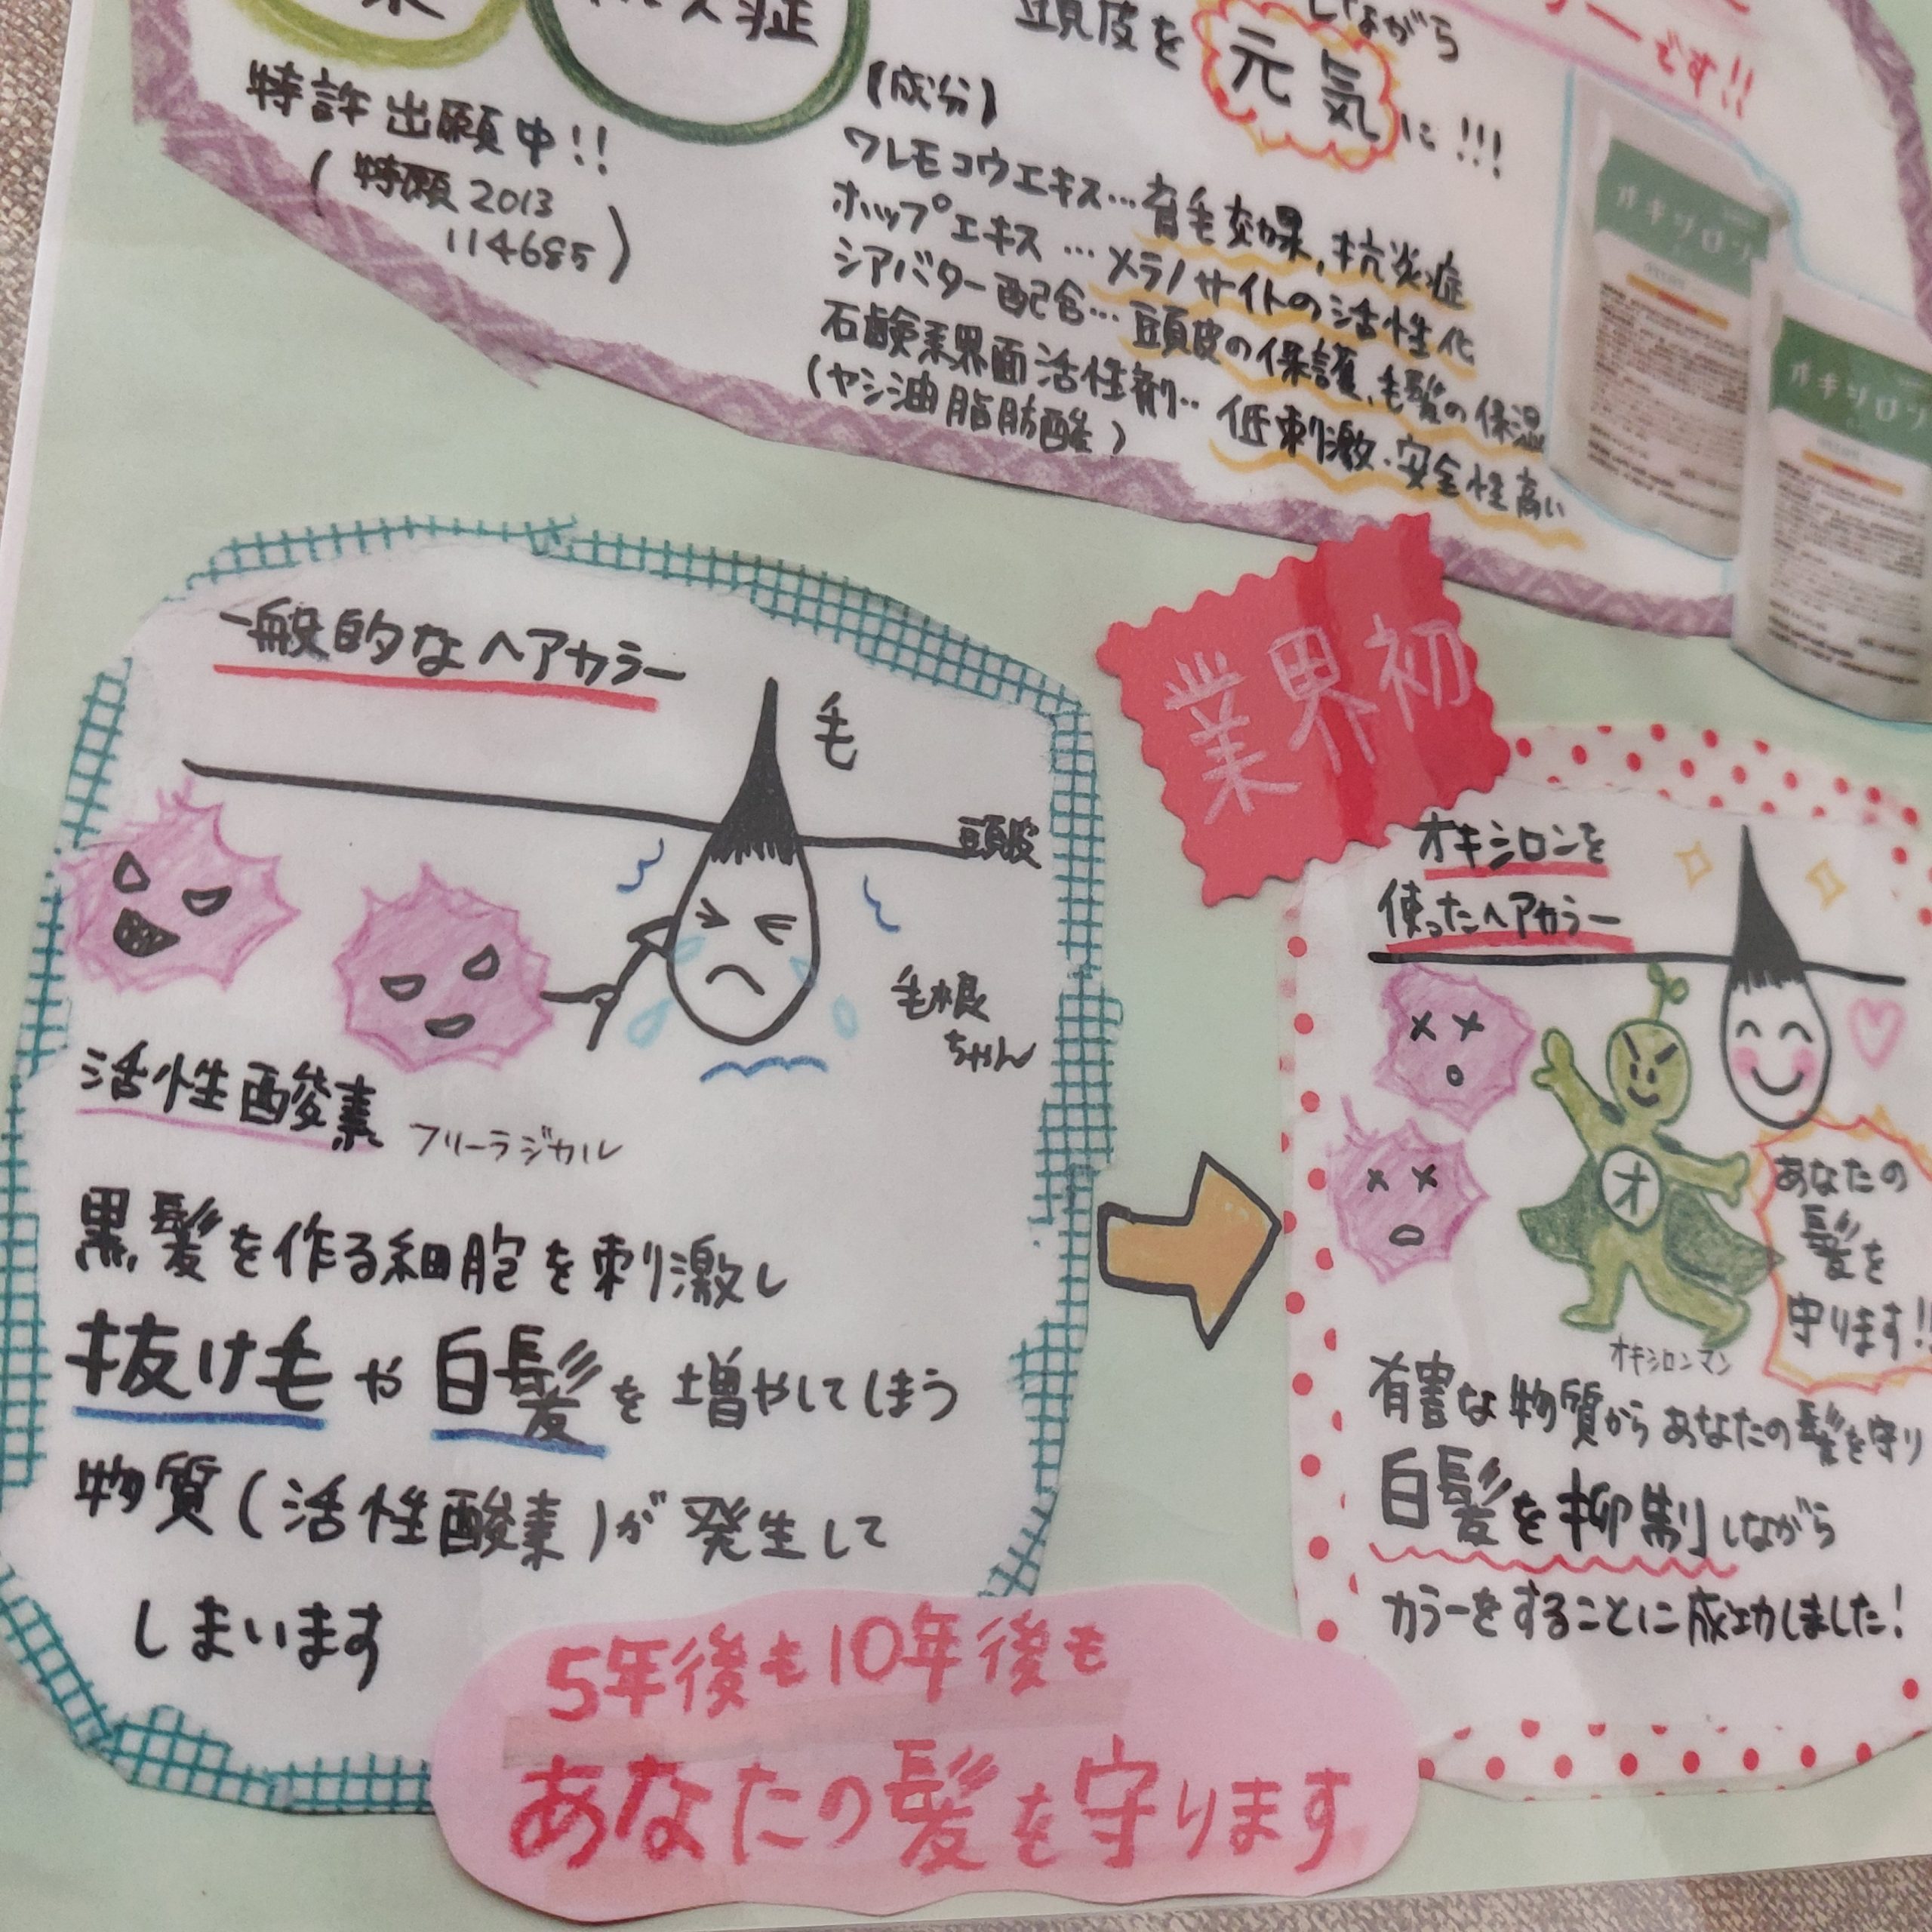 しながら
頭皮を元気に!!!
ーです!!
特許出願中!!
(特願2013
114685)
【成分】
ワレモコウエキス…育毛効果、抗炎症
ホップエキス…メラノサイトの活性化
シアバター配合…頭皮の保護、毛髪の保湿
石鹸系界面活性剤…低刺激・安全性高い
(ヤシ油脂肪酸)
オキシロン
オキシロン
一般的なヘアカラー
毛
頭皮
毛根
ちゃん
活性酸素 フリーラジカル
黒髪を作る細胞を刺激し
抜け毛や白髪を増やしてしまう
物質(活性酸素)が発生して
しまいます
業界初
オキシロンを
使ったヘアカラー
オ
あなたの
髪を
守ります!!
オキシロンマン
有害な物質からあなたの髪を守り
白髪を抑制しながら
カラーをすることに成功しました!
5年後も10年後も
あなたの髪を守ります